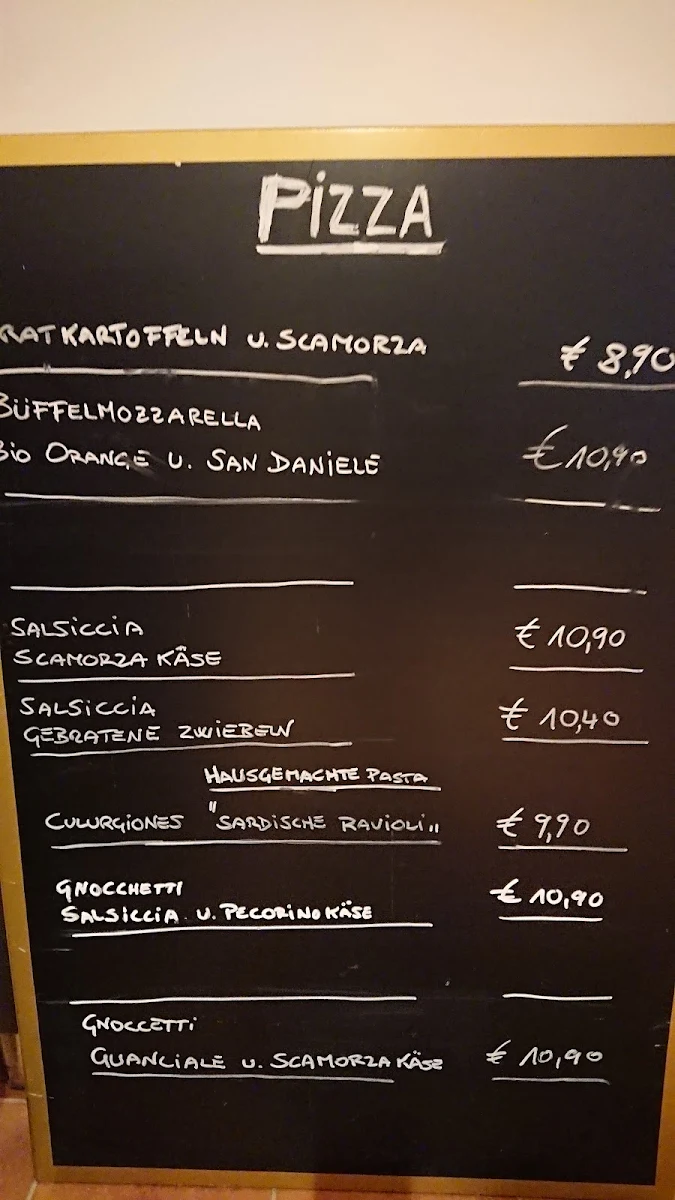 PiZZA
RATKARTOFFELN U. SCAMORZA
€ 8,90
BÜFFELMOZZARELLA
BiO ORANGE U. SAN DANiELE
€ 10,90
SALSiCCiA
SCAMORZA KÄSE
€ 10,90
SALSiCCiA
GEBRATENE ZWiEBELN
€ 10,40
HAUSGEMACHTE PASTA
CULURGiONES "SARDiSCHE RAViOLi"
€ 9,90
GNOCCHETTI
SALSiCCiA U. PECORiNO KÄSE
€ 10,90
GNOCCETTi
GUANCiALE U. SCAMORZA KÄSE
€ 10,90